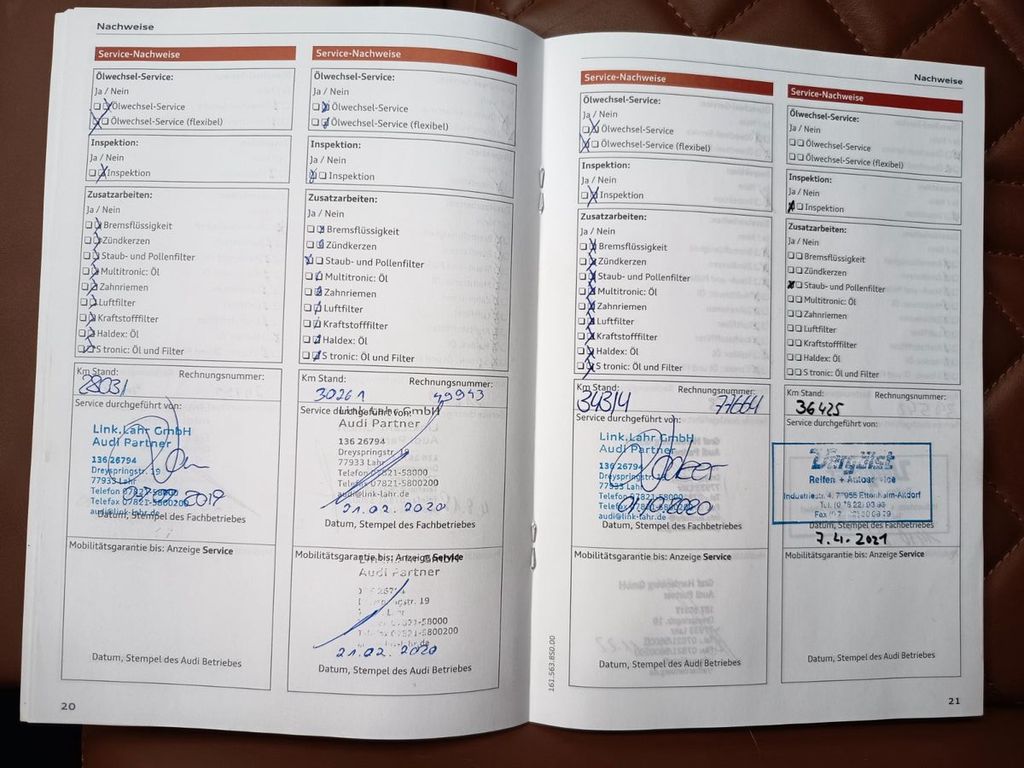 Nachweise
Service-Nachweise
Ölwechsel-Service:
Ja / Nein
Ölwechsel-Service
Ölwechsel-Service (flexibel)
Inspektion:
Ja / Nein
Inspektion
Zusatzarbeiten:
Ja / Nein
Bremsflüssigkeit
Zündkerzen
Staub- und Pollenfilter
Multitronic: Öl
Zahnriemen
Luftfilter
Kraftstofffilter
Haldex: Öl
S tronic: Öl und Filter
Km Stand:
Rechnungsnummer:
28031
Service durchgeführt von:
Link.Lahr GmbH
Audi Partner
136 26794
Dreyspringstr. 19
77933 Lahr
Telefon 07821-58000
Telefax 07821-5800200
audi@link-lahr.de
2019
Datum, Stempel des Fachbetriebes
Mobilitätsgarantie bis: Anzeige Service
Datum, Stempel des Audi Betriebes
20
Service-Nachweise
Ölwechsel-Service:
Ja / Nein
Ölwechsel-Service
Ölwechsel-Service (flexibel)
Inspektion:
Ja / Nein
Inspektion
Zusatzarbeiten:
Ja / Nein
Bremsflüssigkeit
Zündkerzen
Staub- und Pollenfilter
Multitronic: Öl
Zahnriemen
Luftfilter
Kraftstofffilter
Haldex: Öl
S tronic: Öl und Filter
Km Stand:
Rechnungsnummer:
30261 49943
Service durchgeführt von:
Link.Lahr GmbH
Audi Partner
136 26794
Dreyspringstr. 19
77933 Lahr
Telefon 07821-58000
Telefax 07821-5800200
audi@link-lahr.de
21.02.2020
Datum, Stempel des Fachbetriebes
Mobilitätsgarantie bis: Anzeige Service
Audi Partner
21.02.2020
Datum, Stempel des Audi Betriebes
Nachweise
Service-Nachweise
Ölwechsel-Service:
Ja / Nein
Ölwechsel-Service
Ölwechsel-Service (flexibel)
Inspektion:
Ja / Nein
Inspektion
Zusatzarbeiten:
Ja / Nein
Bremsflüssigkeit
Zündkerzen
Staub- und Pollenfilter
Multitronic: Öl
Zahnriemen
Luftfilter
Kraftstofffilter
Haldex: Öl
S tronic: Öl und Filter
Km Stand:
Rechnungsnummer:
34314 77664
Service durchgeführt von:
Link.Lahr GmbH
Audi Partner
136 26794
Dreyspringstr. 19
77933 Lahr
Telefon 07821-58000
Telefax 07821-5800200
audi@link-lahr.de
01.10.2020
Datum, Stempel des Fachbetriebes
Mobilitätsgarantie bis: Anzeige Service
Datum, Stempel des Audi Betriebes
161.563.850.00
Service-Nachweise
Ölwechsel-Service:
Ja / Nein
Ölwechsel-Service
Ölwechsel-Service (flexibel)
Inspektion:
Ja / Nein
Inspektion
Zusatzarbeiten:
Ja / Nein
Bremsflüssigkeit
Zündkerzen
Staub- und Pollenfilter
Multitronic: Öl
Zahnriemen
Luftfilter
Kraftstofffilter
Haldex: Öl
S tronic: Öl und Filter
Km Stand:
Rechnungsnummer:
36425
Service durchgeführt von:
Reifen + Autoservice
Industriestr. 4, 77955 Ettenheim-Altdorf
Datum, Stempel des Fachbetriebes
7.4.2021
Mobilitätsgarantie bis: Anzeige Service
Datum, Stempel des Audi Betriebes
21